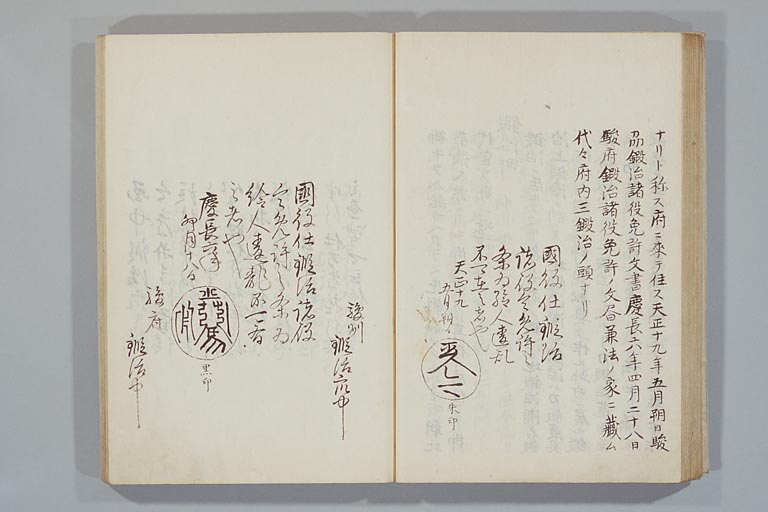 ナリト称ス府ニ来テ住ス天正十九年五月朔日駿
刕鍛冶諸役免許文書慶長六年四月二十八日
駿府鍛冶諸役免許ノ文各兼法ノ家ニ蔵ム
代々府内三鍛冶ノ頭ナリ
國役仕鍛冶
諸役令免許之
条为给人違乱
不可在之者也
天正十九
五月朔日
朱印
駿州
鍛冶六中
國役仕鍛冶諸役
令免許之条为
给人違乱不可有
之者也
慶長六年
卯月廿八日
黒印
駿府
鍛冶中